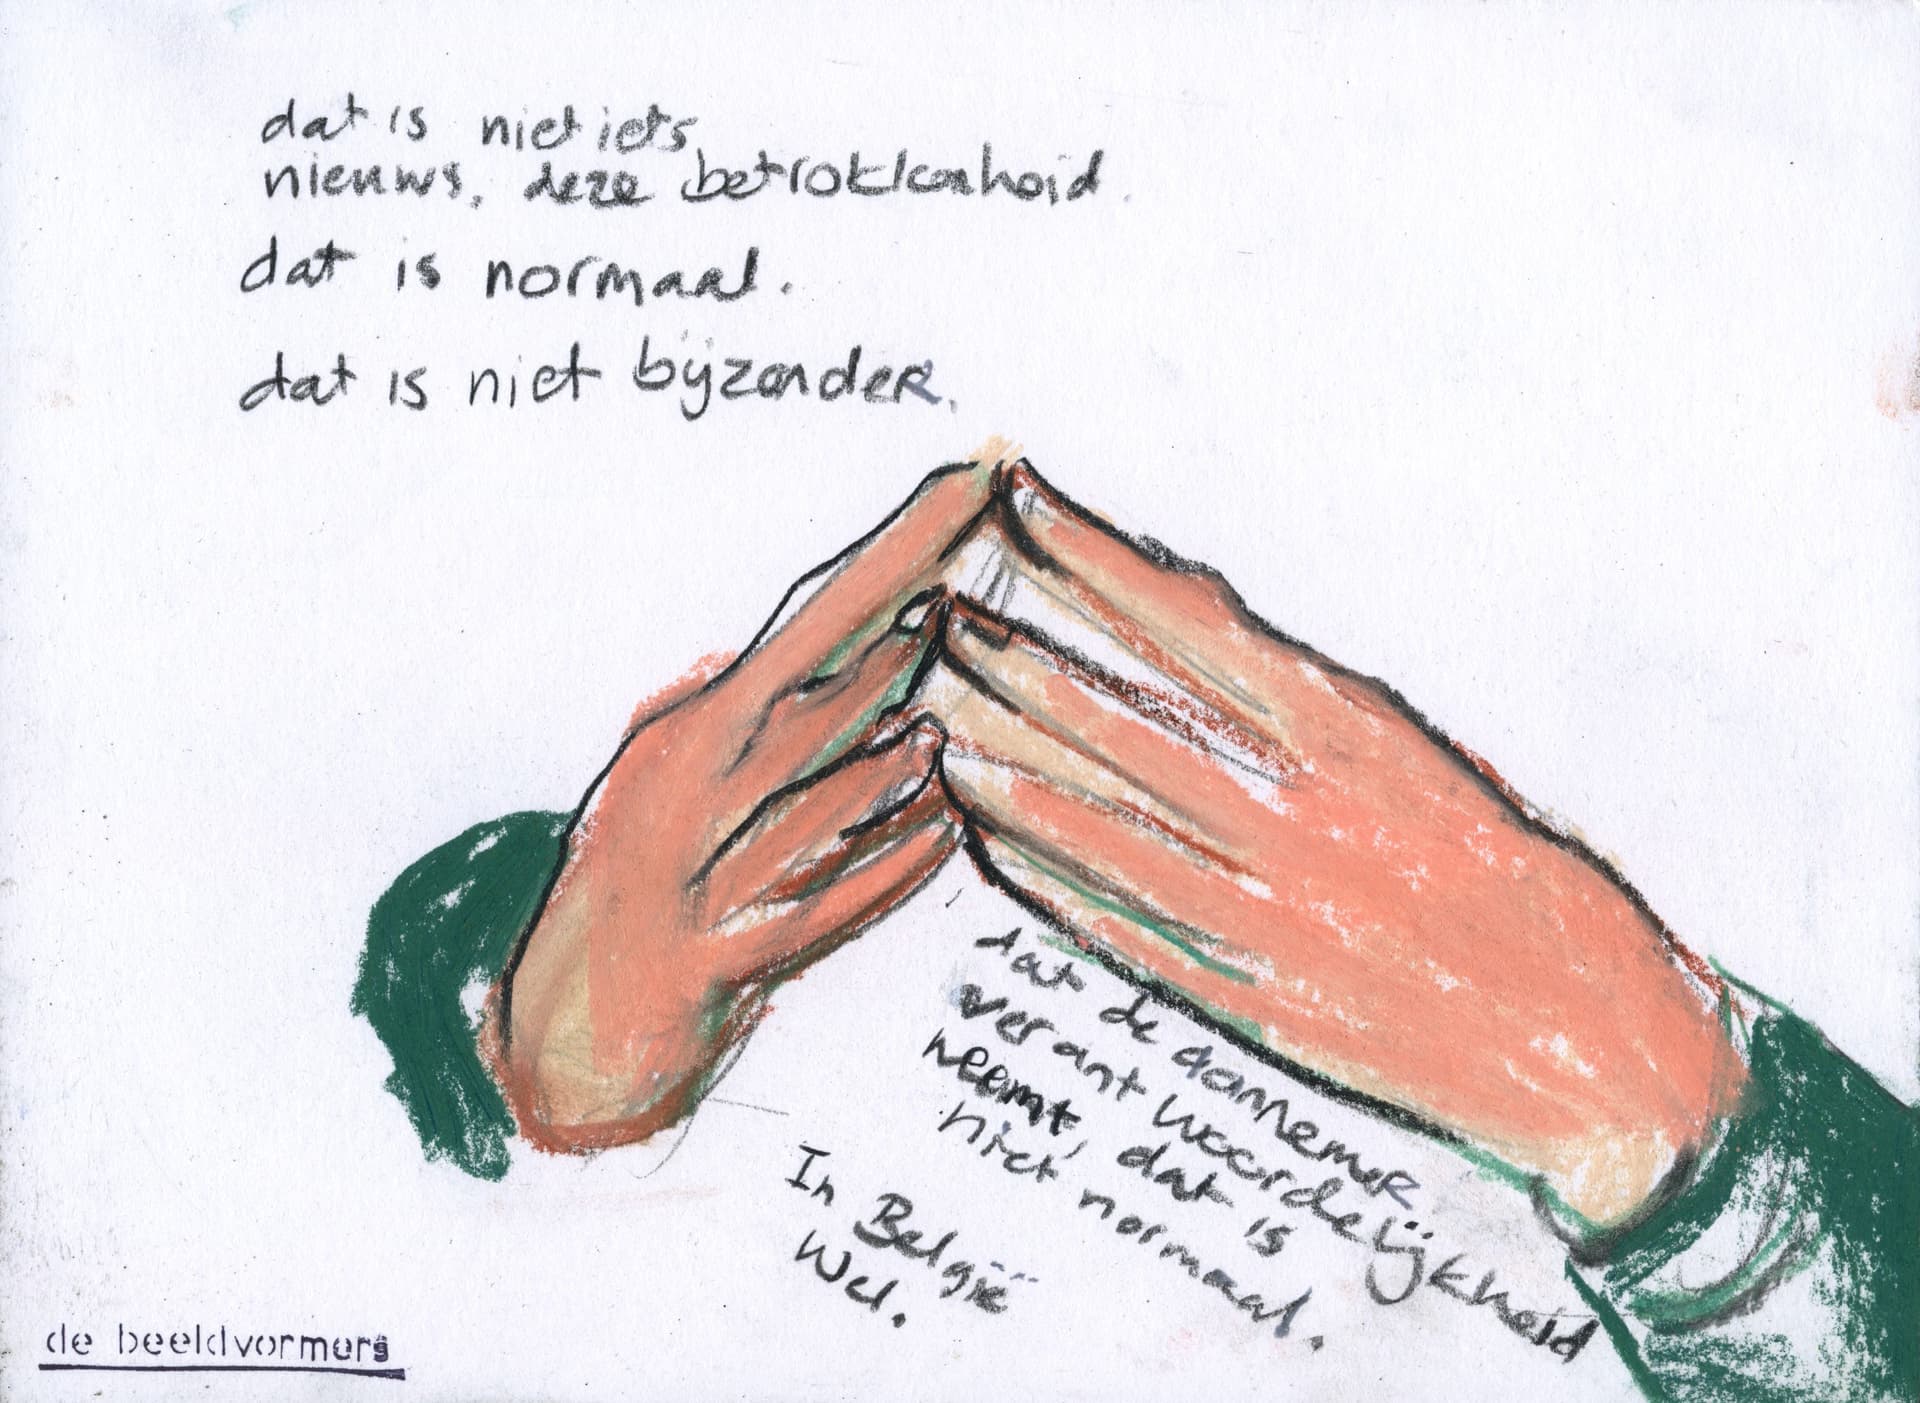 dat is niet iets
nieuws, deze betrokkenheid.
dat is normaal.
dat is niet bijzonder.
dat de aannemer
verantwoordelijkheid
neemt, dat is
niet normaal.
In België
wel.
de beeldvormers